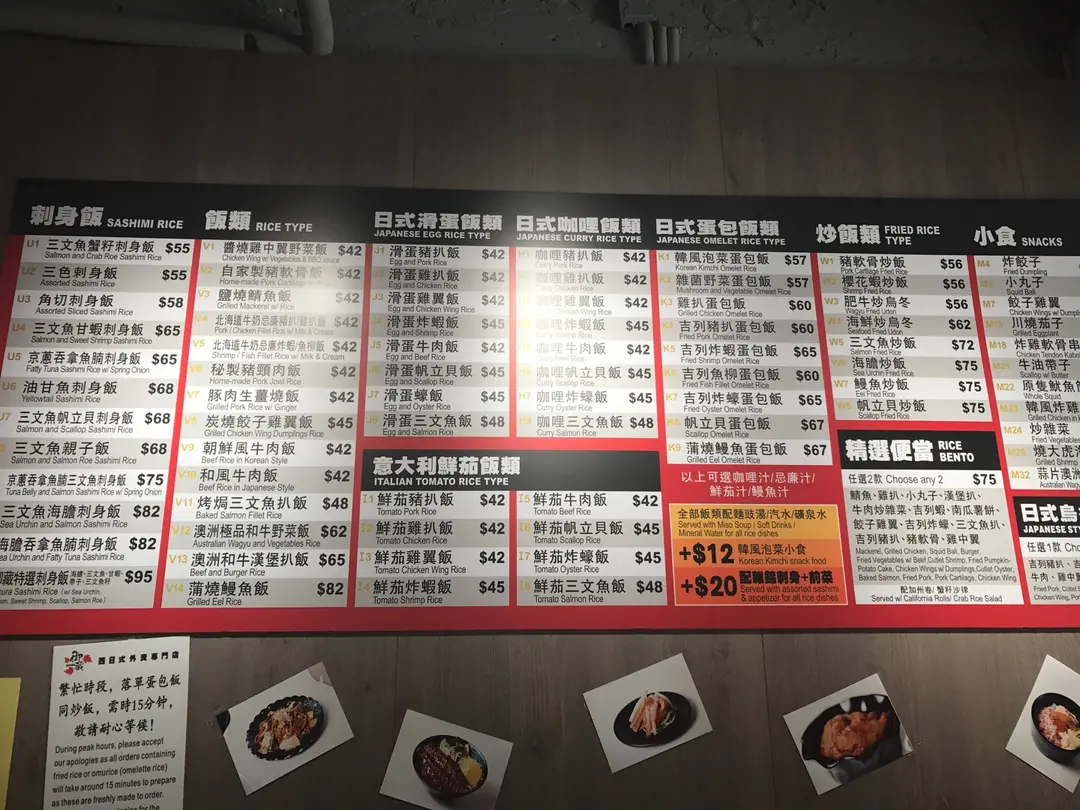 刺身飯 SASHIMI RICE
U1 三文魚蟹籽刺身飯 $55
Salmon and Crab Roe Sashimi Rice
U2 三色刺身飯 $55
Three Kinds Sashimi Rice
U3 角切刺身飯 $58
Assorted Sliced Sashimi Rice
U4 三文魚甘蝦刺身飯 $65
Salmon and Sweet Shrimp Sashimi Rice
U5 京蔥吞拿魚腩刺身飯 $65
Fatty Tuna Sashimi Rice w/ Spring Onion
U6 油甘魚刺身飯 $68
Yellowtail Sashimi Rice
U7 三文魚帆立貝刺身飯 $68
Salmon and Scallop Sashimi Rice
三文魚親子飯 $68
Salmon and Salmon Roe Sashimi Rice
京蔥吞拿魚腩三文魚刺身飯 $75
Tuna Belly and Salmon Sashimi Rice w/ Spring Onion
三文魚海膽刺身飯 $82
Sea Urchin and Salmon Sashimi Rice
海膽吞拿魚腩刺身飯 $82
Sea Urchin and Fatty Tuna Sashimi Rice
特選刺身飯 $95
飯類 RICE TYPE
V1 醬燒雞中翼野菜飯 $42
Chicken Wing w/ Vegetables & BBQ sauce
V2 自家製豬軟骨飯 $42
Home-made Pork Cartilage Rice
V3 鹽燒鯖魚飯 $42
Grilled Mackerel w/ Rice
V4 北海道牛奶忌廉豬扒/雞扒飯 $42
Pork / Chicken Fillet Rice w/ Milk & Cream
V5 北海道牛奶忌廉蝦/魚柳飯 $42
Shrimp / Fish Fillet Rice w/ Milk & Cream
V6 秘製豬頸肉飯 $42
Home-made Pork Jowl Rice
V7 豚肉生薑燒飯 $42
Grilled Pork Rice w/ Ginger
V8 炭燒餃子雞翼飯 $45
Grilled Chicken Wing Dumplings Rice
V9 朝鮮風牛肉飯 $42
Beef Rice in Korean Style
V10 和風牛肉飯 $42
Beef Rice in Japanese Style
V11 烤焗三文魚扒飯 $48
Baked Salmon Fillet Rice
V12 澳洲極品和牛野菜飯 $62
Australian Wagyu and Vegetables Rice
V13 澳洲和牛漢堡扒飯 $65
Beef and Burger Rice
V14 蒲燒鰻魚飯 $82
Grilled Eel Rice
日式滑蛋飯類
JAPANESE EGG RICE TYPE
J1 滑蛋豬扒飯 $42
Egg and Pork Rice
J2 滑蛋雞扒飯 $42
Egg and Chicken Rice
J3 滑蛋雞翼飯 $42
Egg and Chicken Wing Rice
J4 滑蛋炸蝦飯 $45
Egg and Shrimp Rice
J5 滑蛋牛肉飯 $42
Egg and Beef Rice
J6 滑蛋帆立貝飯 $45
Egg and Scallop Rice
J7 滑蛋蠔飯 $45
Egg and Oyster Rice
J8 滑蛋三文魚飯 $48
Egg and Salmon Rice
日式咖哩飯類
JAPANESE CURRY RICE TYPE
H1 咖哩豬扒飯 $42
Curry Pork Rice
H2 咖哩雞扒飯 $42
Curry Chicken Rice
H3 咖哩雞翼飯 $42
Curry Chicken Wing Rice
H4 咖哩炸蝦飯 $45
Curry Shrimp Rice
H5 咖哩牛肉飯 $42
Curry Beef Rice
H6 咖哩帆立貝飯 $45
Curry Scallop Rice
H7 咖哩炸蠔飯 $45
Curry Oyster Rice
H8 咖哩三文魚飯 $48
Curry Salmon Rice
意大利鮮茄飯類
ITALIAN TOMATO RICE TYPE
I1 鮮茄豬扒飯 $42
Tomato Pork Rice
I2 鮮茄雞扒飯 $42
Tomato Chicken Rice
I3 鮮茄雞翼飯 $42
Tomato Chicken Wing Rice
I4 鮮茄炸蝦飯 $45
Tomato Shrimp Rice
I5 鮮茄牛肉飯 $42
Tomato Beef Rice
I6 鮮茄帆立貝飯 $45
Tomato Scallop Rice
I7 鮮茄炸蠔飯 $45
Tomato Oyster Rice
I8 鮮茄三文魚飯 $48
Tomato Salmon Rice
日式蛋包飯類
JAPANESE OMELET RICE TYPE
K1 韓風泡菜蛋包飯 $57
Korean Kimchi Omelet Rice
K2 雜菌野菜蛋包飯 $57
Mushroom and Vegetable Omelet Rice
K3 雞扒蛋包飯 $60
Chicken Omelet Rice
K4 吉列豬扒蛋包飯 $60
Fried Pork Omelet Rice
K5 吉列炸蝦蛋包飯 $65
Fried Shrimp Omelet Rice
K6 吉列魚柳蛋包飯 $60
Fried Fish Fillet Omelet Rice
K7 吉列炸蠔蛋包飯 $65
Fried Oyster Omelet Rice
K8 帆立貝蛋包飯 $67
Scallop Omelet Rice
K9 蒲燒鰻魚蛋包飯 $67
Grilled Eel Omelet Rice
以上可選咖哩汁/忌廉汁/
鮮茄汁/鰻魚汁
全部飯類配麵豉湯/汽水/礦泉水
Served with Miso Soup / Soft Drinks /
Mineral Water for all rice dishes
+$12 韓風泡菜小食
Korean Kimchi snack food
+$20 配雜錦刺身+前菜
Served with assorted sashimi
& appetizer for all rice dishes
炒飯類 FRIED RICE TYPE
W1 豬軟骨炒飯 $56
Pork Cartilage Fried Rice
W2 櫻花蝦炒飯 $56
Shrimp Fried Rice
W3 肥牛炒烏冬 $56
Wagyu Fried Udon
W4 海鮮炒烏冬 $62
Seafood Fried Udon
W5 三文魚炒飯 $72
Salmon Fried Rice
W6 海膽炒飯 $75
Sea Urchin Fried Rice
W7 鰻魚炒飯 $75
Eel Fried Rice
W8 帆立貝炒飯 $75
Scallop Fried Rice
精選便當 RICE BENTO
任選2款 Choose any 2 $75
鯖魚、雞扒、小丸子、漢堡扒、
牛肉炒雜菜、吉列蝦、南瓜薯餅、
餃子雞翼、吉列炸蠔、三文魚扒、
吉列豬扒、豬軟骨、雞中翼
Mackerel, Grilled Chicken, Squid Ball, Burger,
Fried Vegetables w/ Beef, Cutlet Shrimp, Fried Pumpkin-
Potato Cake, Chicken Wings w/ Dumplings, Cutlet Oyster,
Baked Salmon, Fried Pork, Pork Cartilage, Chicken Wing
配加州卷/ 蟹籽沙律
Served w/ California Rolls/ Crab Roe Salad
小食 SNACKS
M4 炸餃子
Fried Dumpling
小丸子
Squid Ball
M7 餃子雞翼
Chicken Wings w/
川燒茄子
Grilled Eggplant
M18 炸雞軟骨串
Chicken Tendon
牛油帶子
Scallop w/ Butter
M22 原隻魷魚
Whole Squid
韓風炸雞
M24 炒雜菜
Fried Vegetables
燒大虎
Grilled Shrimp
M32 蒜片澳
日式烏
JAPANESE
任選1款
西日式外賣專門店
繁忙時段，落單蛋包飯
同炒飯，需時15分钟，
敬請耐心等候！
During peak hours, please accept
our apologies as all orders containing
fried rice or omurice (omelette rice)
will take around 15 minutes to prepare
as these are freshly made to order.